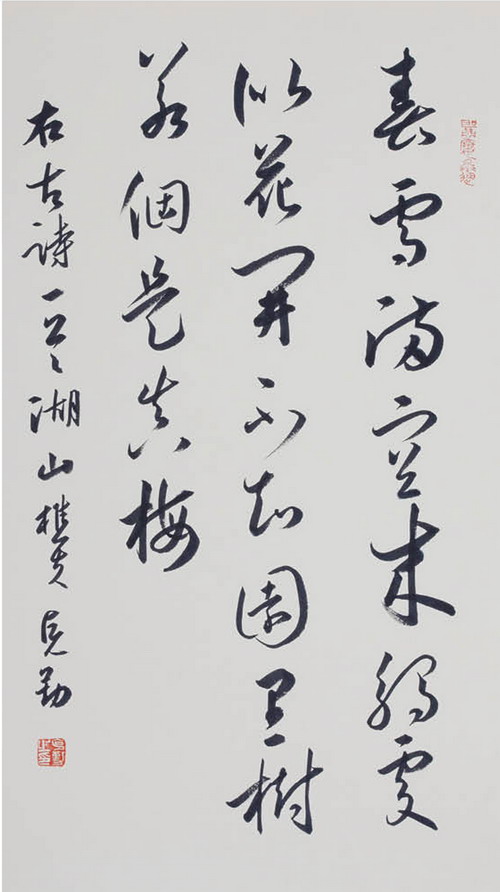 春雪滿空来觸處
似花開不知園里樹
若個是真梅
右古詩一首湖山樵夫